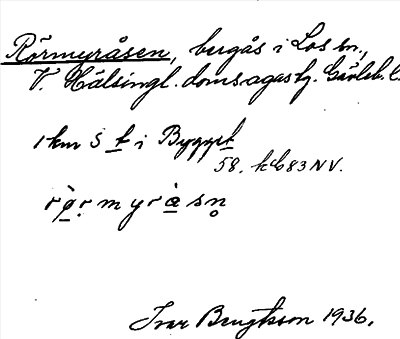 Rörmyråsen, bergås i Los sn.,
V. Hälsingl. domsagas tg. Gävleb. l.
1 km S t i Bygget
58. kb 83 NV.
rò̱ṛmyrà̱sn̥
Ivar Bengtsson 1936.